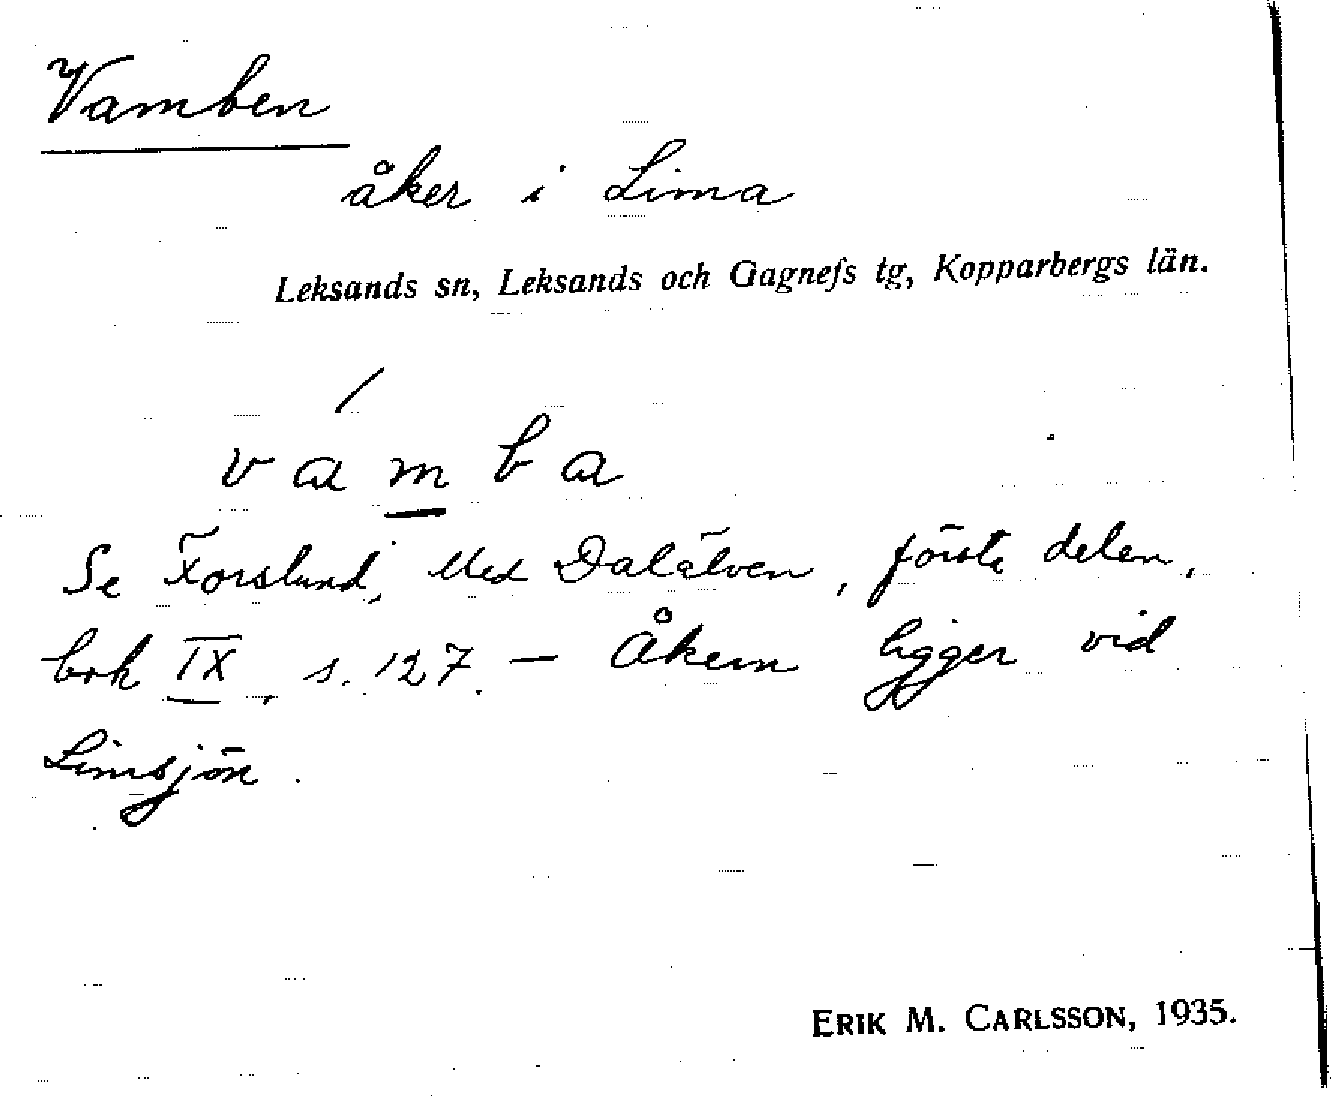 Vamben
åker i Lima
Leksands sn, Leksands och Gagnefs tg, Kopparbergs län.
/
vamba
Se Forslund, Med Dalälven, första delen,
bok IX, s. 127. — Åkern ligger vid
Limsjön.
ERIK M. CARLSSON, 1935.